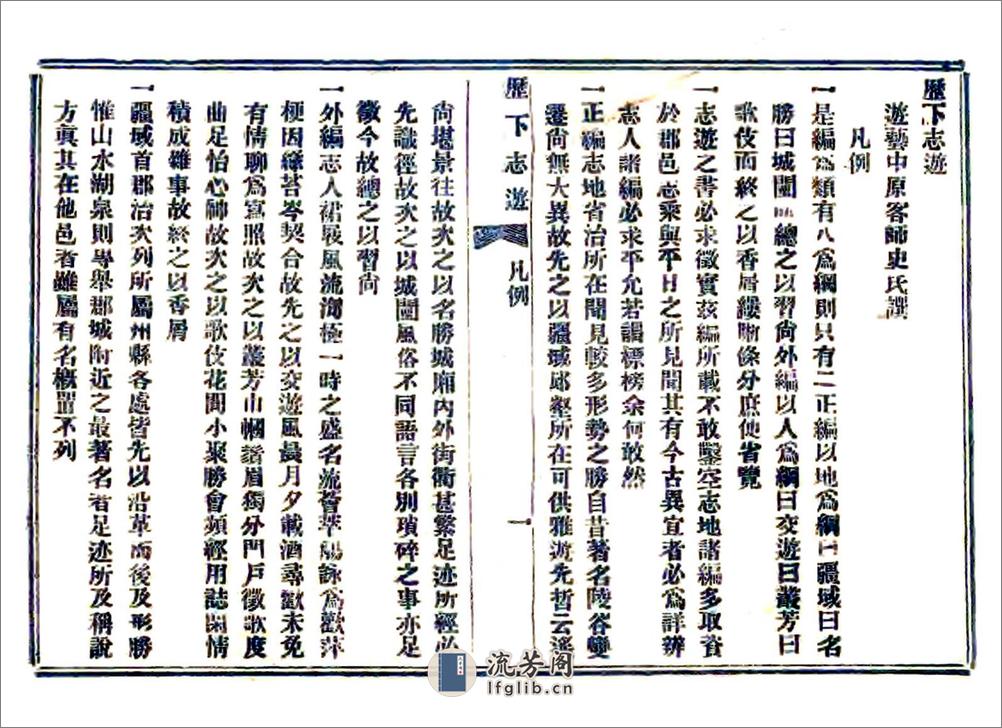 歷下志遊
遊藝中原客師史氏譔
凡例
一是編爲類有八爲綱則只有二正編以地爲綱曰疆域曰名
勝曰城闉而總之以習尙外編以人爲綱曰交遊曰叢芳曰
歌伎而終之以香屑縷晰條分庶便省覽
一志遊之書必求徵實茲編所載不敢鑿空志地諸編多取資
於郡邑志乘與平日之所見聞其有今古異宜者必爲詳辨
志人諸編必求平允若謂標榜余何敢然
一正編志地省治所在聞見較多形勢之勝自昔著名陵谷變
遷尙無大異故先之以疆域邱壑所在可供雅遊先哲云遙
歷下志遊 凡例 一
尙堪景往故次之以名勝城廂內外街衢甚繁足迹所經必
先識徑故次之以城闉風俗不同語言各別瑣碎之事亦足
徵今故總之以習尙
一外編志人裙屐風流海極一時之盛名流薈萃觴詠爲歡萍
梗因緣苔岑契合故先之以交遊風晨月夕載酒尋歡未免
有情聊爲寫照故次之以叢芳山幗諸眉獨分門戶徵歌度
曲足怡心神故次之以歌伎花間小聚勝會頻經用誌閑情
積成雜事故終之以香屑
一疆域首郡治次列所屬州縣各處皆先以沿革而後及形勝
惟山水湖泉則專舉郡城附近之最著名者足迹所及稱說
方眞其在他邑者雖屬有名槪置不列
流芳閣
lfglib.cn